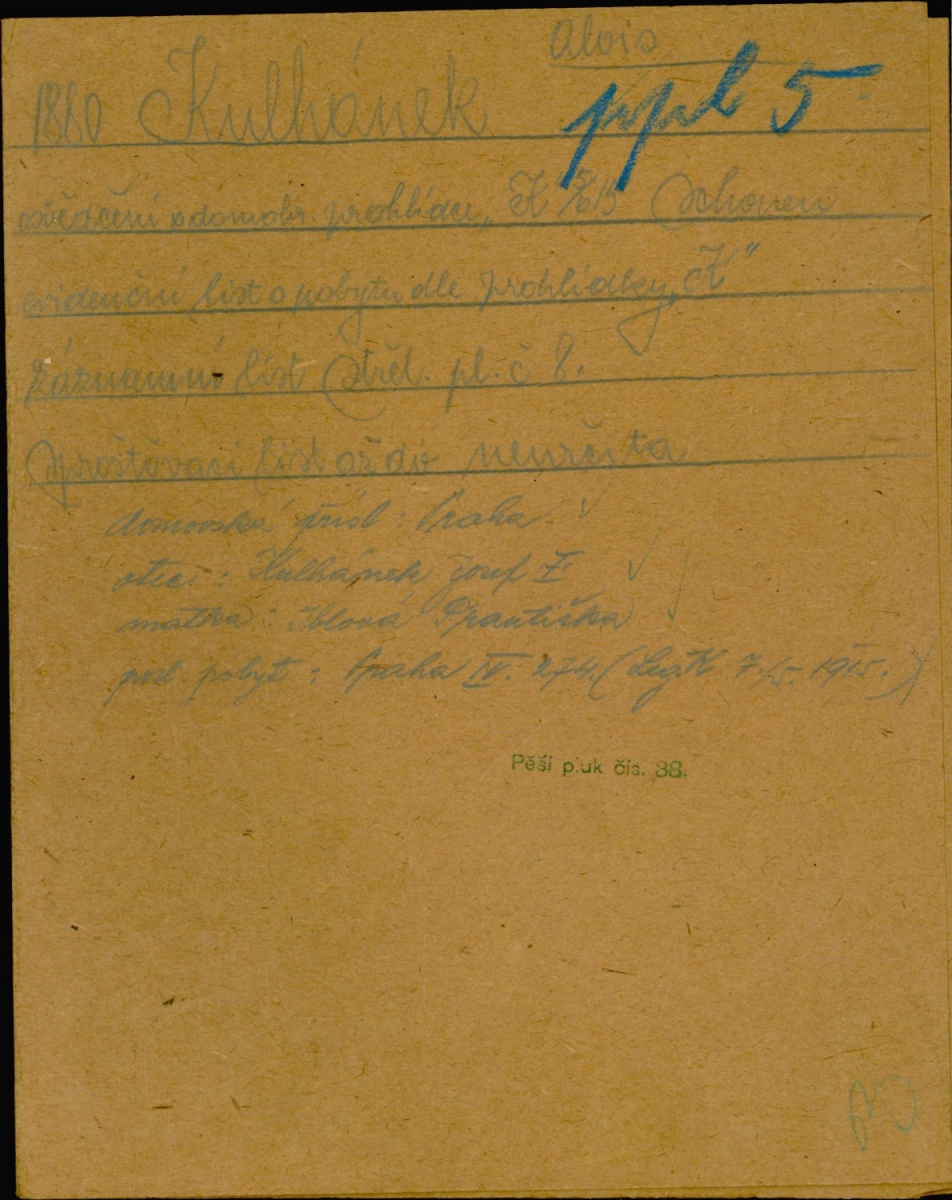 Alois
1880 Kulhánek ppl 5.
osvědčení o domobr. prohlídce „K 5/6 15 Schopen
evidenční list o pobytu dle prohlídky „K"
Záznamní list Střel. pl. č 8.
Sprošťovací list až do neurčita
domovská přísl : Praha
otec : Kulhánek Josef
matka : Františka
posl. pobyt : Praha IV. 274. ( Leg. K 7./5. 1915. )
Pěší pluk čís. 88.